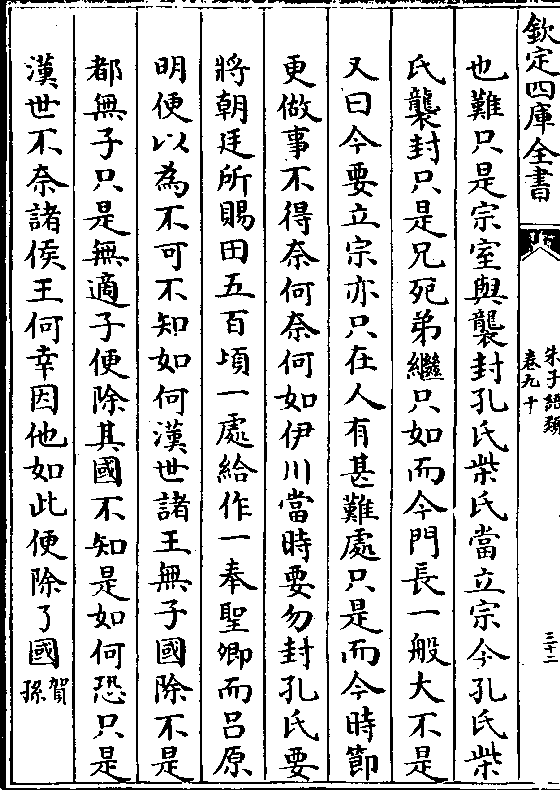 欽定四庫全書
朱子語類
卷九十
三十二
也難只是宗室與襲封孔氏柴氏當立宗今孔氏柴
氏襲封只是兄死弟繼只如而今門長一般大不是
又曰今要立宗亦只在人有甚難處只是而今時節
更做事不得奈何奈何如伊川當時要勿封孔氏要
將朝廷所賜田五百頃一處給作一奉聖鄉而呂原
明便以為不可不知如何漢世諸王無子國除不是
都無子只是無適子便除其國不知是如何恐只是
漢世不奈諸侯王何幸因他如此便除了國賀孫